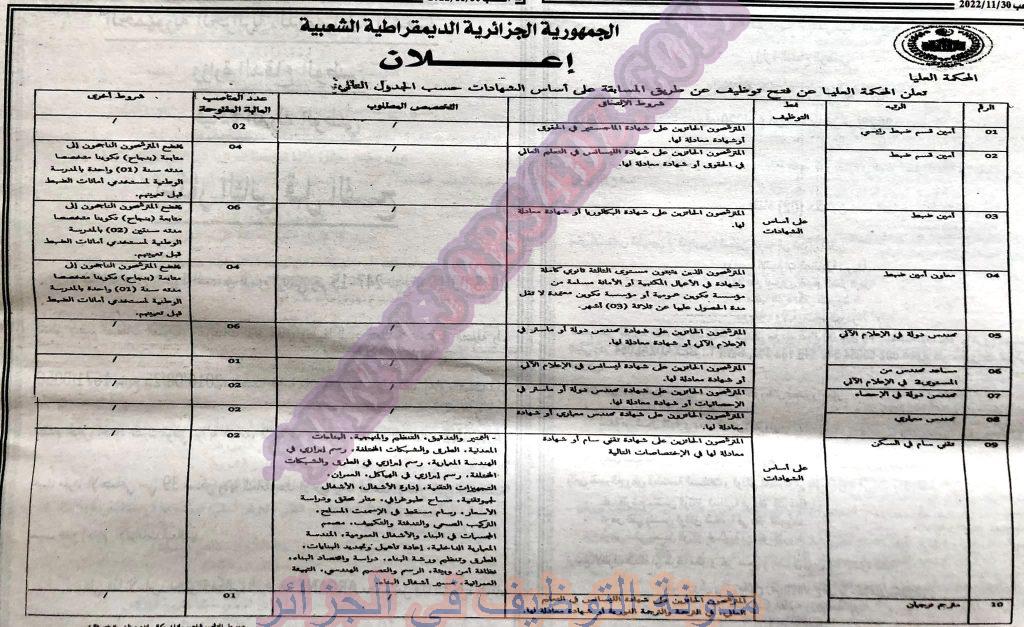 2022/11/30
الجمهورية الجزائرية الديمقراطية الشعبية
إعــــلان
المحكمة العليا
تعلن المحكمة العليا عن فتح توظيف عن طريق المسابقة على أساس الشهادات حسب الجدول التالي:
الرقم الرتبة نمط التوظيف شروط الإلتحاق التخصص المطلوب عدد المناصب المالية المفتوحة شروط أخرى
01 أمين قسم ضبط رئيسي
المترشحون الحائزين على شهادة الماجستير في الحقوق
أو شهادة معادلة لها.
/ 02 /
02 أمين قسم ضبط
المترشحون الحائزين على شهادة الليسانس في التعليم العالي
في الحقوق أو شهادة معادلة لها.
/ 04
يخضع المترشحون الناجحون إلى
متابعة (بنجاح) تكوينا متخصصا
مدته سنة (01) واحدة بالمدرسة
الوطنية لمستخدمي أمانات الضبط
قبل تعيينهم.
03 أمين ضبط
على أساس
الشهادات
المترشحون الحائزين على شهادة البكالوريا أو شهادة معادلة
لها.
/ 06
يخضع المترشحون الناجحون إلى
متابعة (بنجاح) تكوينا متخصصا
مدته سنتين (02) بالمدرسة
الوطنية لمستخدمي أمانات الضبط
قبل تعيينهم.
04 معاون أمين ضبط
المترشحون الذين يثبتون مستوى الثالثة ثانوي كاملة
وشهادة في الأعمال المكتبية أو الأمانة مسلمة من
مؤسسة تكوين عمومية أو مؤسسة تكوين معتمدة لا تقل
مدة الحصول عليها عن ثلاثة (03) أشهر.
/ 04
يخضع المترشحون الناجحون إلى
متابعة (بنجاح) تكوينا متخصصا
مدته سنة (01) واحدة بالمدرسة
الوطنية لمستخدمي أمانات الضبط
قبل تعيينهم.
05 مهندس دولة في الإعلام الآلي
المترشحون الحائزين على شهادة مهندس دولة أو ماستر في
الإعلام الآلي أو شهادة معادلة لها.
/ 06 /
06 مساعد مهندس من
المستوى 2 في الإعلام الآلي
المترشحون الحائزين على شهادة ليسانس في الإعلام الآلي
أو شهادة معادلة لها.
/ 01 /
07 مهندس دولة في الإحصاء
المترشحون الحائزين على شهادة مهندس دولة أو ماستر في
الإحصائيات أو شهادة معادلة لها.
/ 02 /
08 مهندس معماري
المترشحون الحائزون على شهادة مهندس معماري أو شهادة
معادلة لها.
/ 02 /
09 تقني سام في السكن
على أساس
الشهادات
المترشحون الحائزين على شهادة تقني سام أو شهادة
معادلة لها في الإختصاصات التالية
- التمتير والتدقيق، التنظيم والمنهجية، البناءات
المعدنية، الطرق والشبكات المختلفة، رسم إفرازي في
الهندسة المعمارية، رسم إفرازي في الطرق والشبكات
المختلفة، رسم إفرازي في الهياكل، العمران،
التجهيزات التقنية، إدارة الأشغال، الأشغال
الجيوتقنية، مساح طبوغرافي، متار محقق ودراسة
الأسعار، رسام مسقط في الإسمنت المسلح،
التركيب الصحي والتدفئة والتكييف، مصمم
المجسمات في البناء والأشغال العمومية، الهندسة
المعمارية الداخلية، إعادة تأهيل وتجديد البنايات،
الطرق وتنظيم ورشة البناء، دراسة واقتصاد البناء،
نظافة أمن وبيئة، الرسم والتصميم الهندسي، التهيئة
العمرانية، تسيير أشغال البناء.
02 /
10 مترجم ترجمان
المترشحون الحائزين على شهادة الليسانس في التعليم
العالي في الترجمة والترجمة الفورية أو شهادة معادلة لها.
/ 01 /
مدونة التوظيف في الجزائر